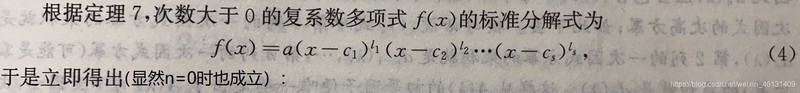 根据定理 7,次数大于 0 的复系数多项式 f(x)的标准分解式为
f(x)=a(x-c₁)^{l₁}(x-c₂)^{l₂}⋯(x-cₛ)^{lₛ}, (4)
于是立即得出(显然n=0时也成立) :
https://blog.csdn.net/weixin_46131409